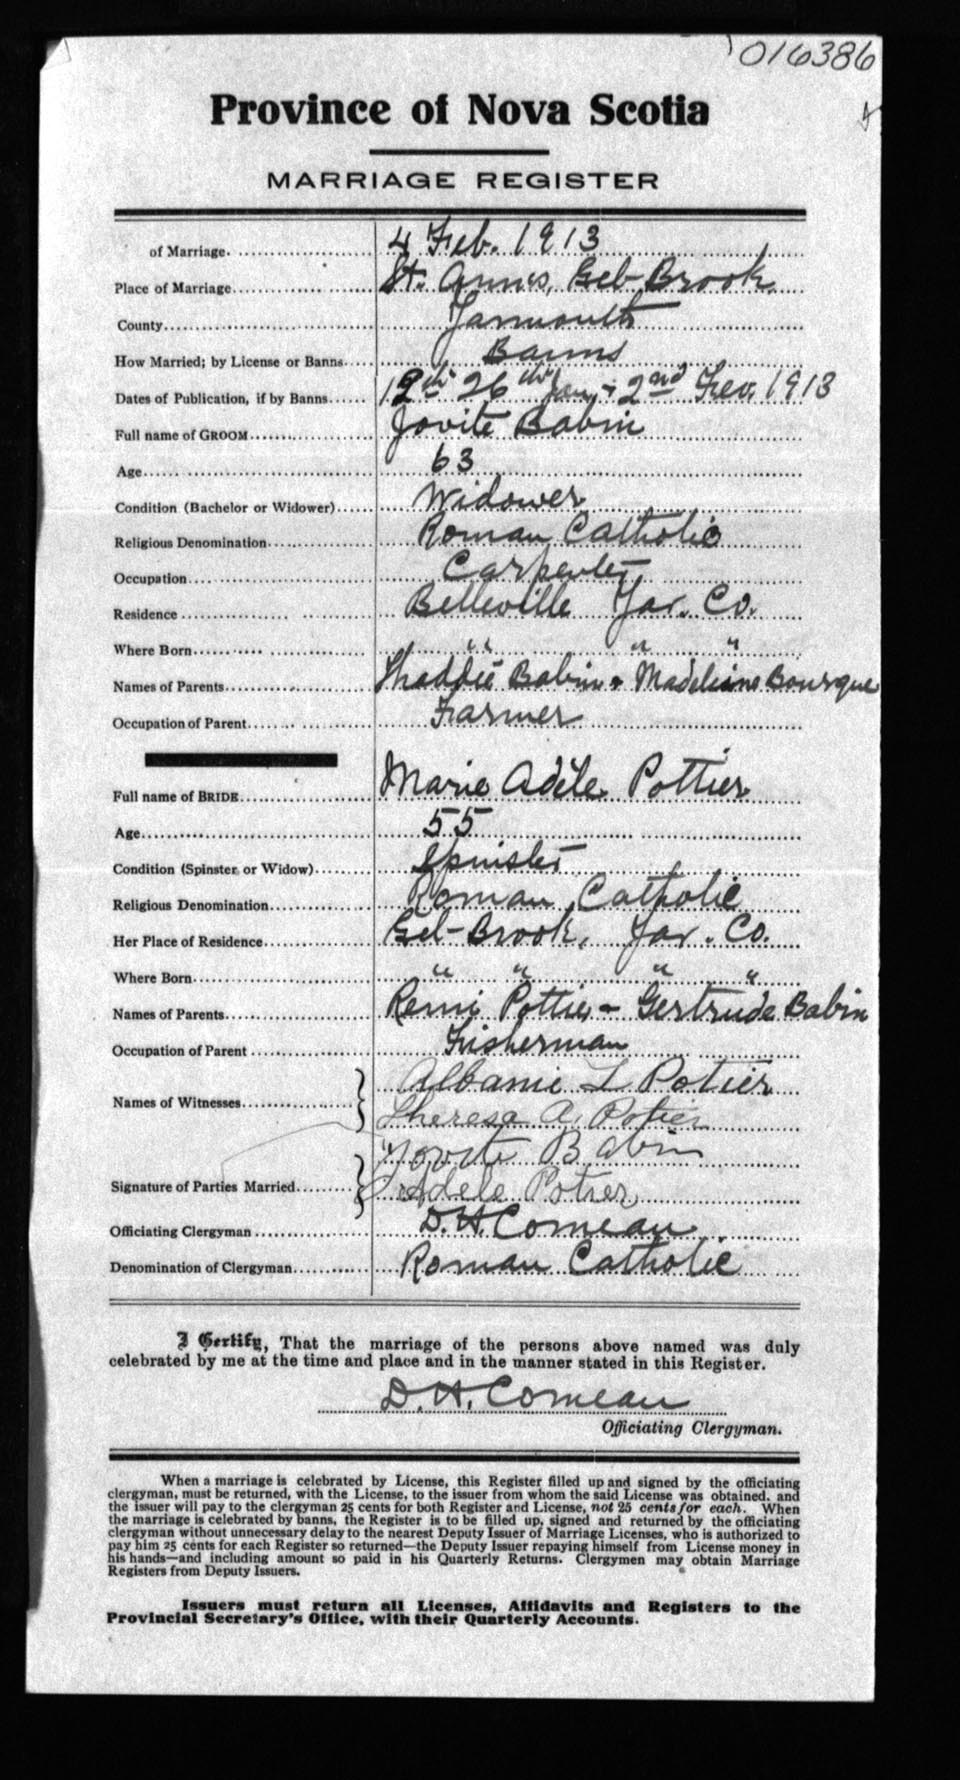 016386
Province of Nova Scotia
MARRIAGE REGISTER
of Marriage. 4 Feb. 1913
Place of Marriage St. Annes, Eel-Brook
County Yarmouth
How Married; by License or Banns Banns
Dates of Publication, if by Banns 19th 26th Jan, + 2nd Fev. 1913
Full name of GROOM Jovite Babin
Age 63
Condition (Bachelor or Widower) Widower
Religious Denomination Roman Catholic
Occupation Carpenter
Residence Belleville Yar. Co.
Where Born " " "
Names of Parents Thaddée Babin + Madeleine Bourque
Occupation of Parent Farmer
Full name of BRIDE Marie Adèle Pottier
Age 55
Condition (Spinster or Widow) Spinster
Religious Denomination Roman Catholic
Her Place of Residence Eel-Brook, Yar. Co.
Where Born " " " "
Names of Parents Remi Pottier - Gertrude Babin
Occupation of Parent Fisherman
Names of Witnesses Albanie L Potier
Theresa A. Potier
Jovite Babin
Signature of Parties Married Adele Potier
Officiating Clergyman D. H. Comeau
Denomination of Clergyman Roman Catholic
I Certify, That the marriage of the persons above named was duly
celebrated by me at the time and place and in the manner stated in this Register.
D. H. Comeau
Officiating Clergyman.
When a marriage is celebrated by License, this Register filled up and signed by the officiating
clergyman, must be returned, with the License, to the issuer from whom the said License was obtained, and
the issuer will pay to the clergyman 25 cents for both Register and License, not 25 cents for each. When
the marriage is celebrated by banns, the Register is to be filled up, signed and returned by the officiating
clergyman without unnecessary delay to the nearest Deputy Issuer of Marriage Licenses, who is authorized to
pay him 25 cents for each Register so returned—the Deputy Issuer repaying himself from License money in
his hands—and including amount so paid in his Quarterly Returns. Clergymen may obtain Marriage
Registers from Deputy Issuers.
Issuers must return all Licenses, Affidavits and Registers to the
Provincial Secretary's Office, with their Quarterly Accounts.